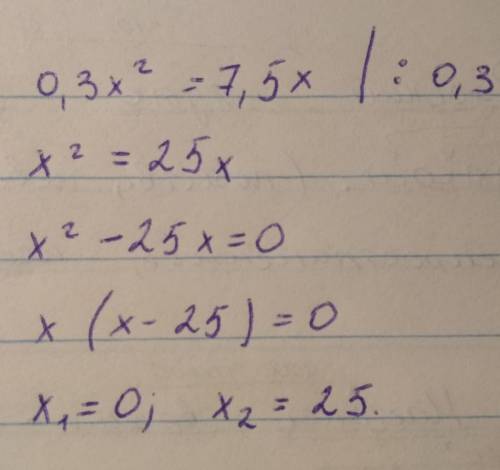 0,3x² = 7,5x | : 0,3
x² = 25x
x² - 25x = 0
x (x - 25) = 0
x₁ = 0; x₂ = 25.